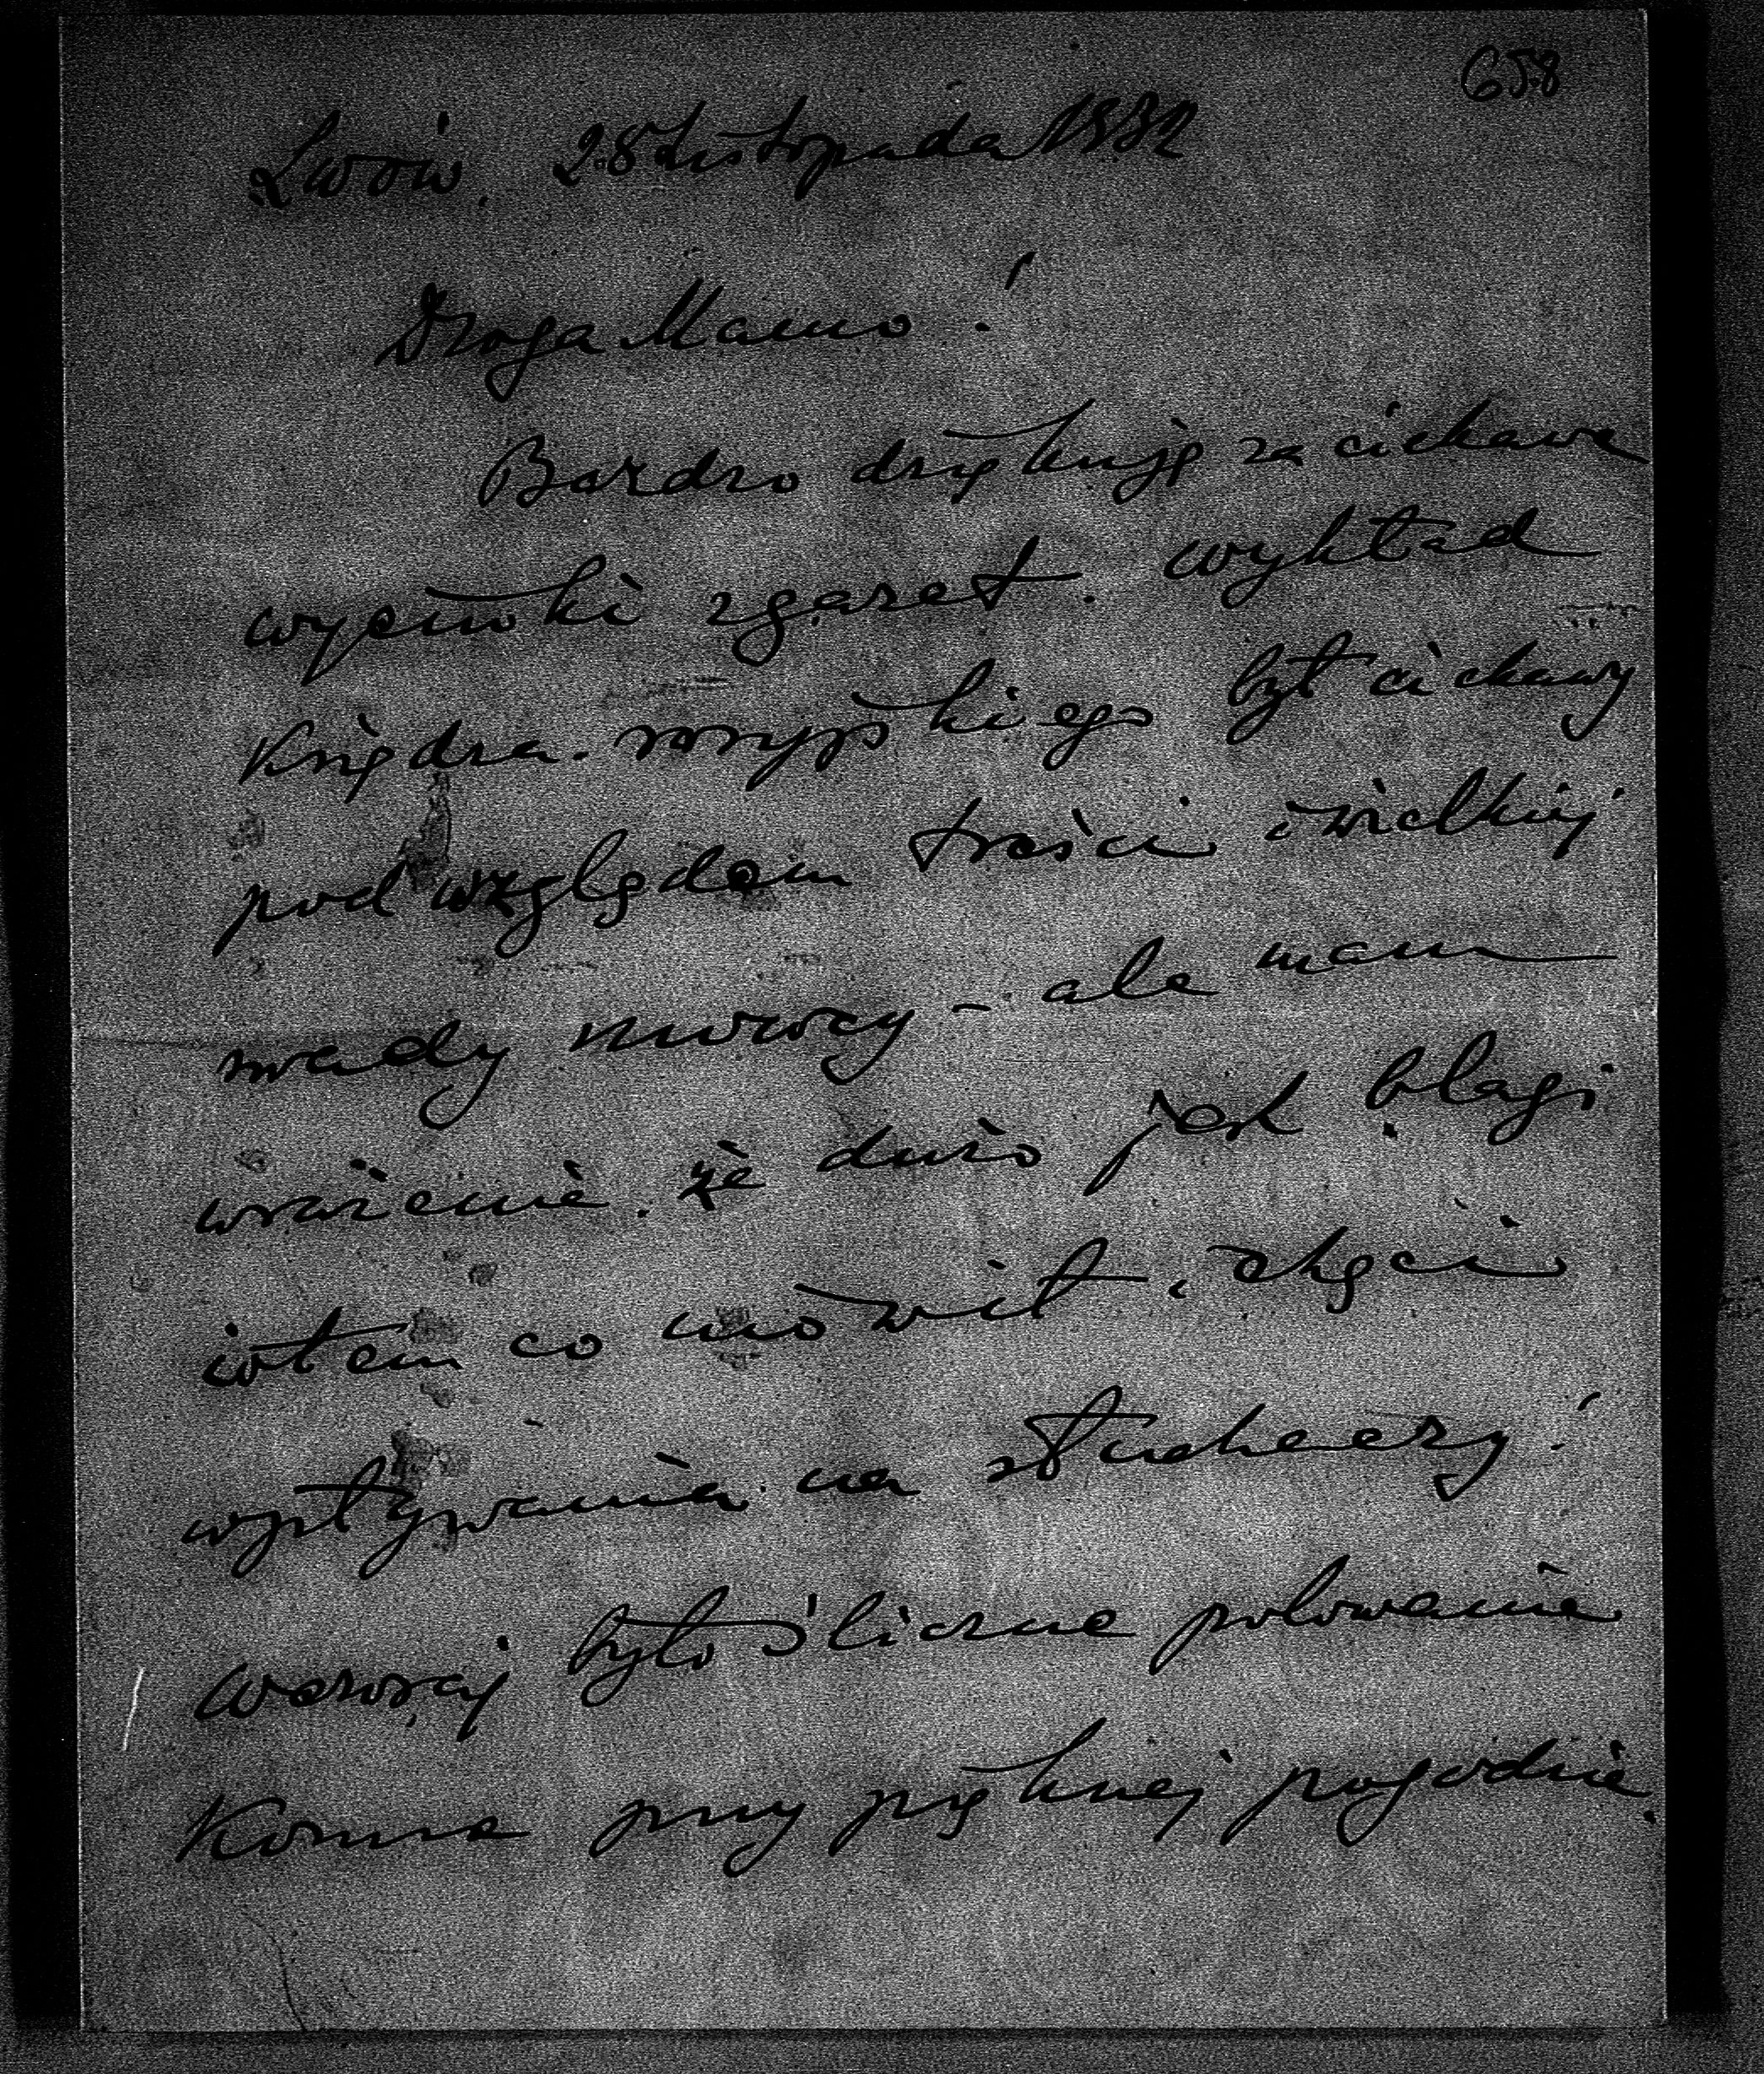 658
Lwów, 28 Listopada 1932
Droga Mamo!
Bardzo dziękuję za ciekawe
wycinki z gazet. wykład
Księdza rosyjskiego był ciekawy
pod względem treści i wielkiej
swady mowcy - ale mam
wrażenie, że dużo jest blagi
i w tem co mówił, i chęci
wpływania na słuchaczy!
wczoraj było śliczne polowanie
Konna przy pięknej pogodzie.